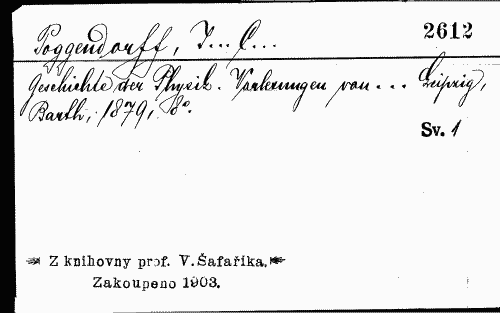 Poggendorff, J... C...
2612
Geschichte der Physik. Vorlesungen von ... Leipzig,
Barth, 1879, 8°.
Sv. 1
Z knihovny prof. V. Šafaříka.
Zakoupeno 1903.